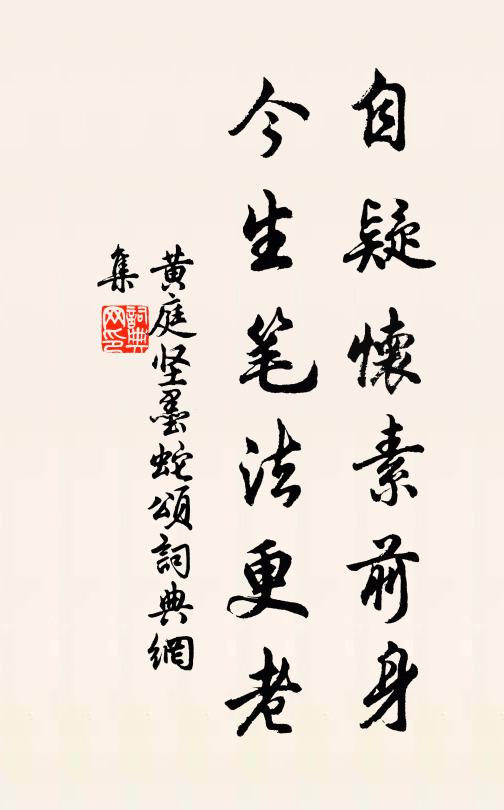 自疑懷素前身
今生笔法更老
黄庭坚墨蛇頌詞典網
集
詞典网印